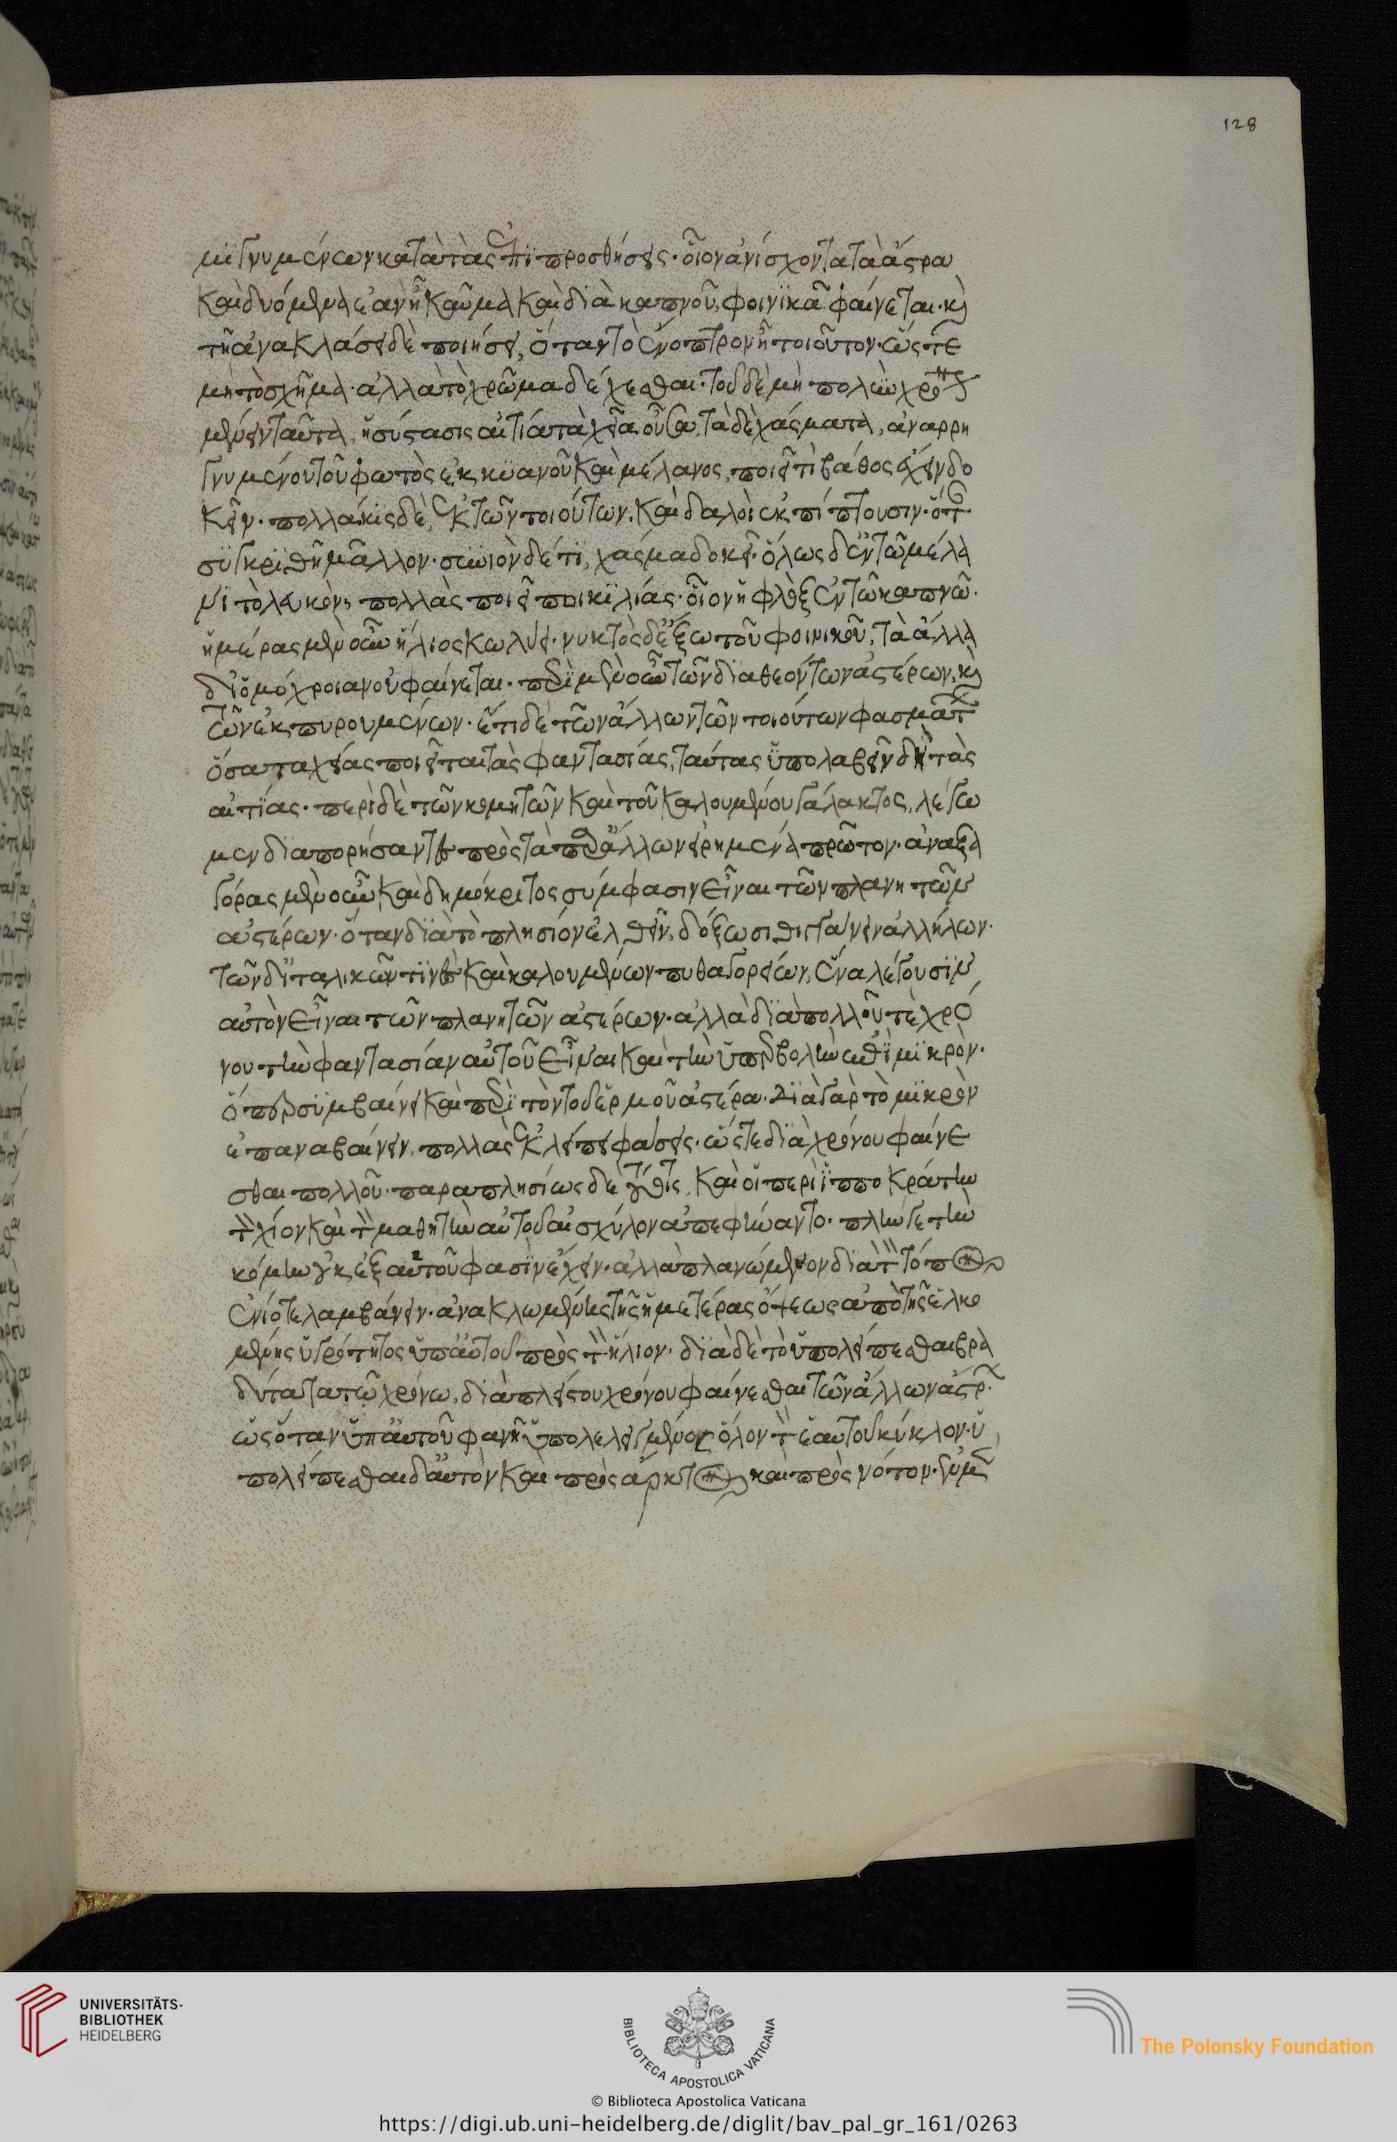 μιγνυμένων κατὰ τὰς ἐπιπροσθήσεις· οἷον ἀνίσχοντα τὰ ἄστρα
καὶ δυόμενα ἐὰν ἦ καῦμα καὶ διὰ καπνοῦ, φοινικᾶ φαίνεται· κ(αὶ)
τῆ ἀνακλάσει δὲ ποιήσει, ὅταν τὸ ἔνοπτρον ἦ τοιοῦτον· ὥστε
μὴ τὸ σχῆμα· ἀλλὰ τὸ χρῶμα δέχεσθαι· τοῦ δὲ μὴ πολὺν χρό(νον)
μένειν ταῦτα, ἡ σύστασις αἰτία ταχεῖα οὖσα, τὰ δὲ χάσματα, ἀναρρη
γνυμένου τοῦ φωτὸς ἐκ κυανοῦ καὶ μέλανος, ποιεῖ τὶ βάθος ἔχειν δο
κεῖν. πολλάκις δὲ, ἐκ τῶν τοιούτων, καὶ δαλοὶ ἐκπίπτουσιν· ὅτ(αν)
συγκριθῆ μᾶλλον· συνιὸν δέ τι, χάσμα δοκεῖ· ὅλως δ ἐν τῶ μέλα
νι τὸ λευκὸν, πολλὰς ποιεῖ ποικιλίας· οἷον ἡ φλὸξ ἐν τῶ καπνῶ·
ἡμέρας μὲν οὖν ἥλιος κωλύει· νυκτὸς δ ἔξω τοῦ φοινικοῦ, τὰ ἄλλα
δι ὁμόχροιαν οὐ φαίνεται· περὶ μὲν οὖν τῶν διαθεόντων ἀστέρων, κ(αὶ)
τῶν ἐκπυρουμένων· ἔτι δὲ τῶν ἄλλων τῶν τοιούτων φασμάτ(ων)
ὅσα ταχείας ποιεῖται τὰς φαντασίας, ταύτας ὑπολαβεῖν δεῖ τὰς
αἰτίας· περὶ δὲ τῶν κομητῶν καὶ τοῦ καλουμένου γάλακτος, λέγω
μεν διαπορήσαντες πρὸς τὰ παρ ἄλλων εἰρημένα πρῶτον· ἀναξα
γόρας μὲν οὖν καὶ δημόκριτος σύμφασιν εἶναι τῶν πλανητῶν
ἀστέρων· ὅταν διὰ τὸ πλησίον ἐλθεῖν, δόξωσι θιγγάνειν ἀλλήλων·
τῶν δ ἰταλικῶν τινὲς καὶ καλουμένων πυθαγορείων, ἕνα λέγουσιν
αὐτὸν εἶναι τῶν πλανητῶν ἀστέρων· ἀλλὰ διὰ πολλοῦ τὲ χρό
νου τὴν φαντασίαν αὐτοῦ εἶναι καὶ τὴν ὑπερβολὴν ἐπὶ μικρόν·
ὅπερ συμβαίνει καὶ περὶ τὸν τοῦ ἑρμοῦ ἀστέρα· διὰ γὰρ τὸ μικρὸν
ἐπαναβαίνειν, πολλὰς ἐκλείπει φάσεις· ὥστε διὰ χρόνου φαίνε
σθαι πολλοῦ· παραπλησίως δὲ τούτοις, καὶ οἱ περὶ ἱπποκράτην
τ(ὸν) χῖον καὶ τ(ὸν) μαθητὴν αὐτοῦ αἰσχύλον ἀπεφήναντο· πλὴν γε τὴν
κόμην οὐκ ἐξ αὐτοῦ φασὶν ἔχειν· ἀλλὰ πλανώμενον διὰ τ(ὸν) τόπον
ἐνίοτε λαμβάνειν· ἀνακλωμένης τῆς ἡμετέρας ὄψεως ἀπὸ τῆς ἑλκο
μένης ὑγρότητος ὑπ αὐτοῦ πρὸς τ(ὸν) ἥλιον· διὰ δὲ τὸ ὑπολείπεσθαι βρα
δύτατα τῶ χρόνω, διὰ πλείστου χρόνου φαίνεσθαι τῶν ἄλλων ἄστρ(ων)·
ὡς ὅταν ὑπ αὐτοῦ φανῆ ὑπολελειμμένον ὅλον τ(ὸν) ἑαυτοῦ κύκλον· ὑ
πολείπεσθαι δ αὐτὸν καὶ πρὸς ἄρκτον καὶ πρὸς νότον·
128
UNIVERSITÄTS-
BIBLIOTHEK
HEIDELBERG
BIBLIOTECA APOSTOLICA VATICANA
© Biblioteca Apostolica Vaticana
The Polonsky Foundation
https://digi.ub.uni-heidelberg.de/diglit/bav_pal_gr_161/0263